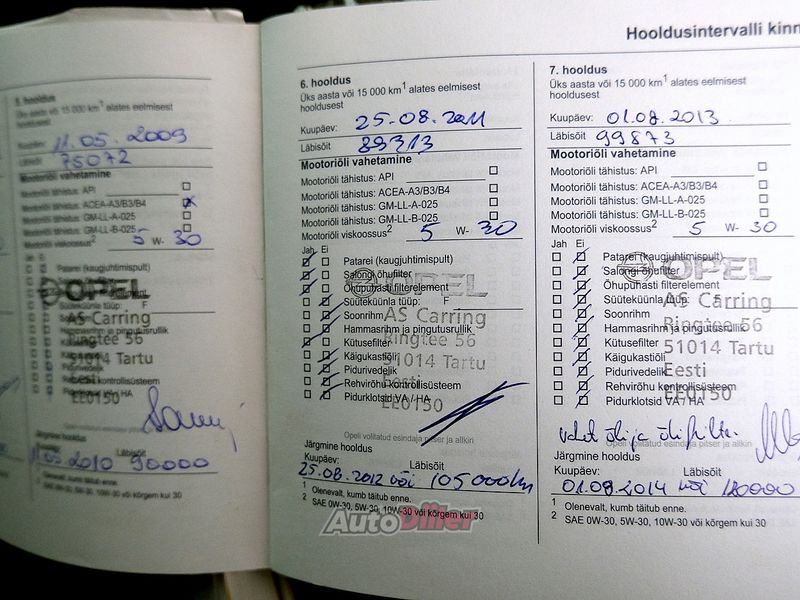 Hooldusintervalli kinn
5. hooldus
Üks aasta või 15 000 km¹ alates eelmisest
hooldusest
Kuupäev: 11.05.2009
Läbisõit 75072
Mootoriõli vahetamine
Mootoriõli tähistus: API
Mootoriõli tähistus: ACEA-A3/B3/B4
Mootoriõli tähistus: GM-LL-A-025
Mootoriõli tähistus: GM-LL-B-025
Mootoriõli viskoossus² 5 W- 30
Jah Ei
Patarei (kaugjuhtimispult)
OPEL
Süüteküünla tüüp: F
AS Carring
Hammasrihm ja pingutusrullik
Ringtee 56
51014 Tartu
Pidurivedelik
Eesti
Rehvirõhu kontrollisüsteem
EE0150
Järgmine hooldus
Kuupäev: Läbisõit
11.05.2010 90000
¹ Olenevalt, kumb täitub enne.
² SAE 0W-30, 5W-30, 10W-30 või kõrgem kui 30
6. hooldus
Üks aasta või 15 000 km¹ alates eelmisest
hooldusest
Kuupäev: 25-08.2011
Läbisõit 89313
Mootoriõli vahetamine
Mootoriõli tähistus: API
Mootoriõli tähistus: ACEA-A3/B3/B4
Mootoriõli tähistus: GM-LL-A-025
Mootoriõli tähistus: GM-LL-B-025
Mootoriõli viskoossus² 5 W- 30
Jah Ei
Patarei (kaugjuhtimispult)
Salongi õhufilter
OPEL
Õhupuhasti filterelement
Süüteküünla tüüp: F
Soonrihm
AS Carring
Hammasrihm ja pingutusrullik
Ringtee 56
Kütusefilter
Käigukastiõli
51014 Tartu
Pidurivedelik
Eesti
Rehvirõhu kontrollisüsteem
EE0150
Pidurklotsid VA / HA
Opeli volitatud esindaja pitser ja allkiri
Järgmine hooldus
Kuupäev: Läbisõit
25.08.2012 või 105000km
¹ Olenevalt, kumb täitub enne.
² SAE 0W-30, 5W-30, 10W-30 või kõrgem kui 30
7. hooldus
Üks aasta või 15 000 km¹ alates eelmisest
hooldusest
Kuupäev: 01.08.2013
Läbisõit 99873
Mootoriõli vahetamine
Mootoriõli tähistus: API
Mootoriõli tähistus: ACEA-A3/B3/B4
Mootoriõli tähistus: GM-LL-A-025
Mootoriõli tähistus: GM-LL-B-025
Mootoriõli viskoossus² 5 W- 30
Jah Ei
Patarei (kaugjuhtimispult)
Salongi õhufilter
OPEL
Õhupuhasti filterelement
Süüteküünla tüüp: F
Soonrihm
AS Carring
Hammasrihm ja pingutusrullik
Ringtee 56
Kütusefilter
Käigukastiõli
51014 Tartu
Pidurivedelik
Eesti
Rehvirõhu kontrollisüsteem
EE0150
Pidurklotsid VA / HA
õli ja õlifilter
Opeli volitatud esindaja pitser ja allkiri
Järgmine hooldus
Kuupäev: Läbisõit
01.08.2014 või 120000
¹ Olenevalt, kumb täitub enne.
² SAE 0W-30, 5W-30, 10W-30 või kõrgem kui 30
AutoDiler